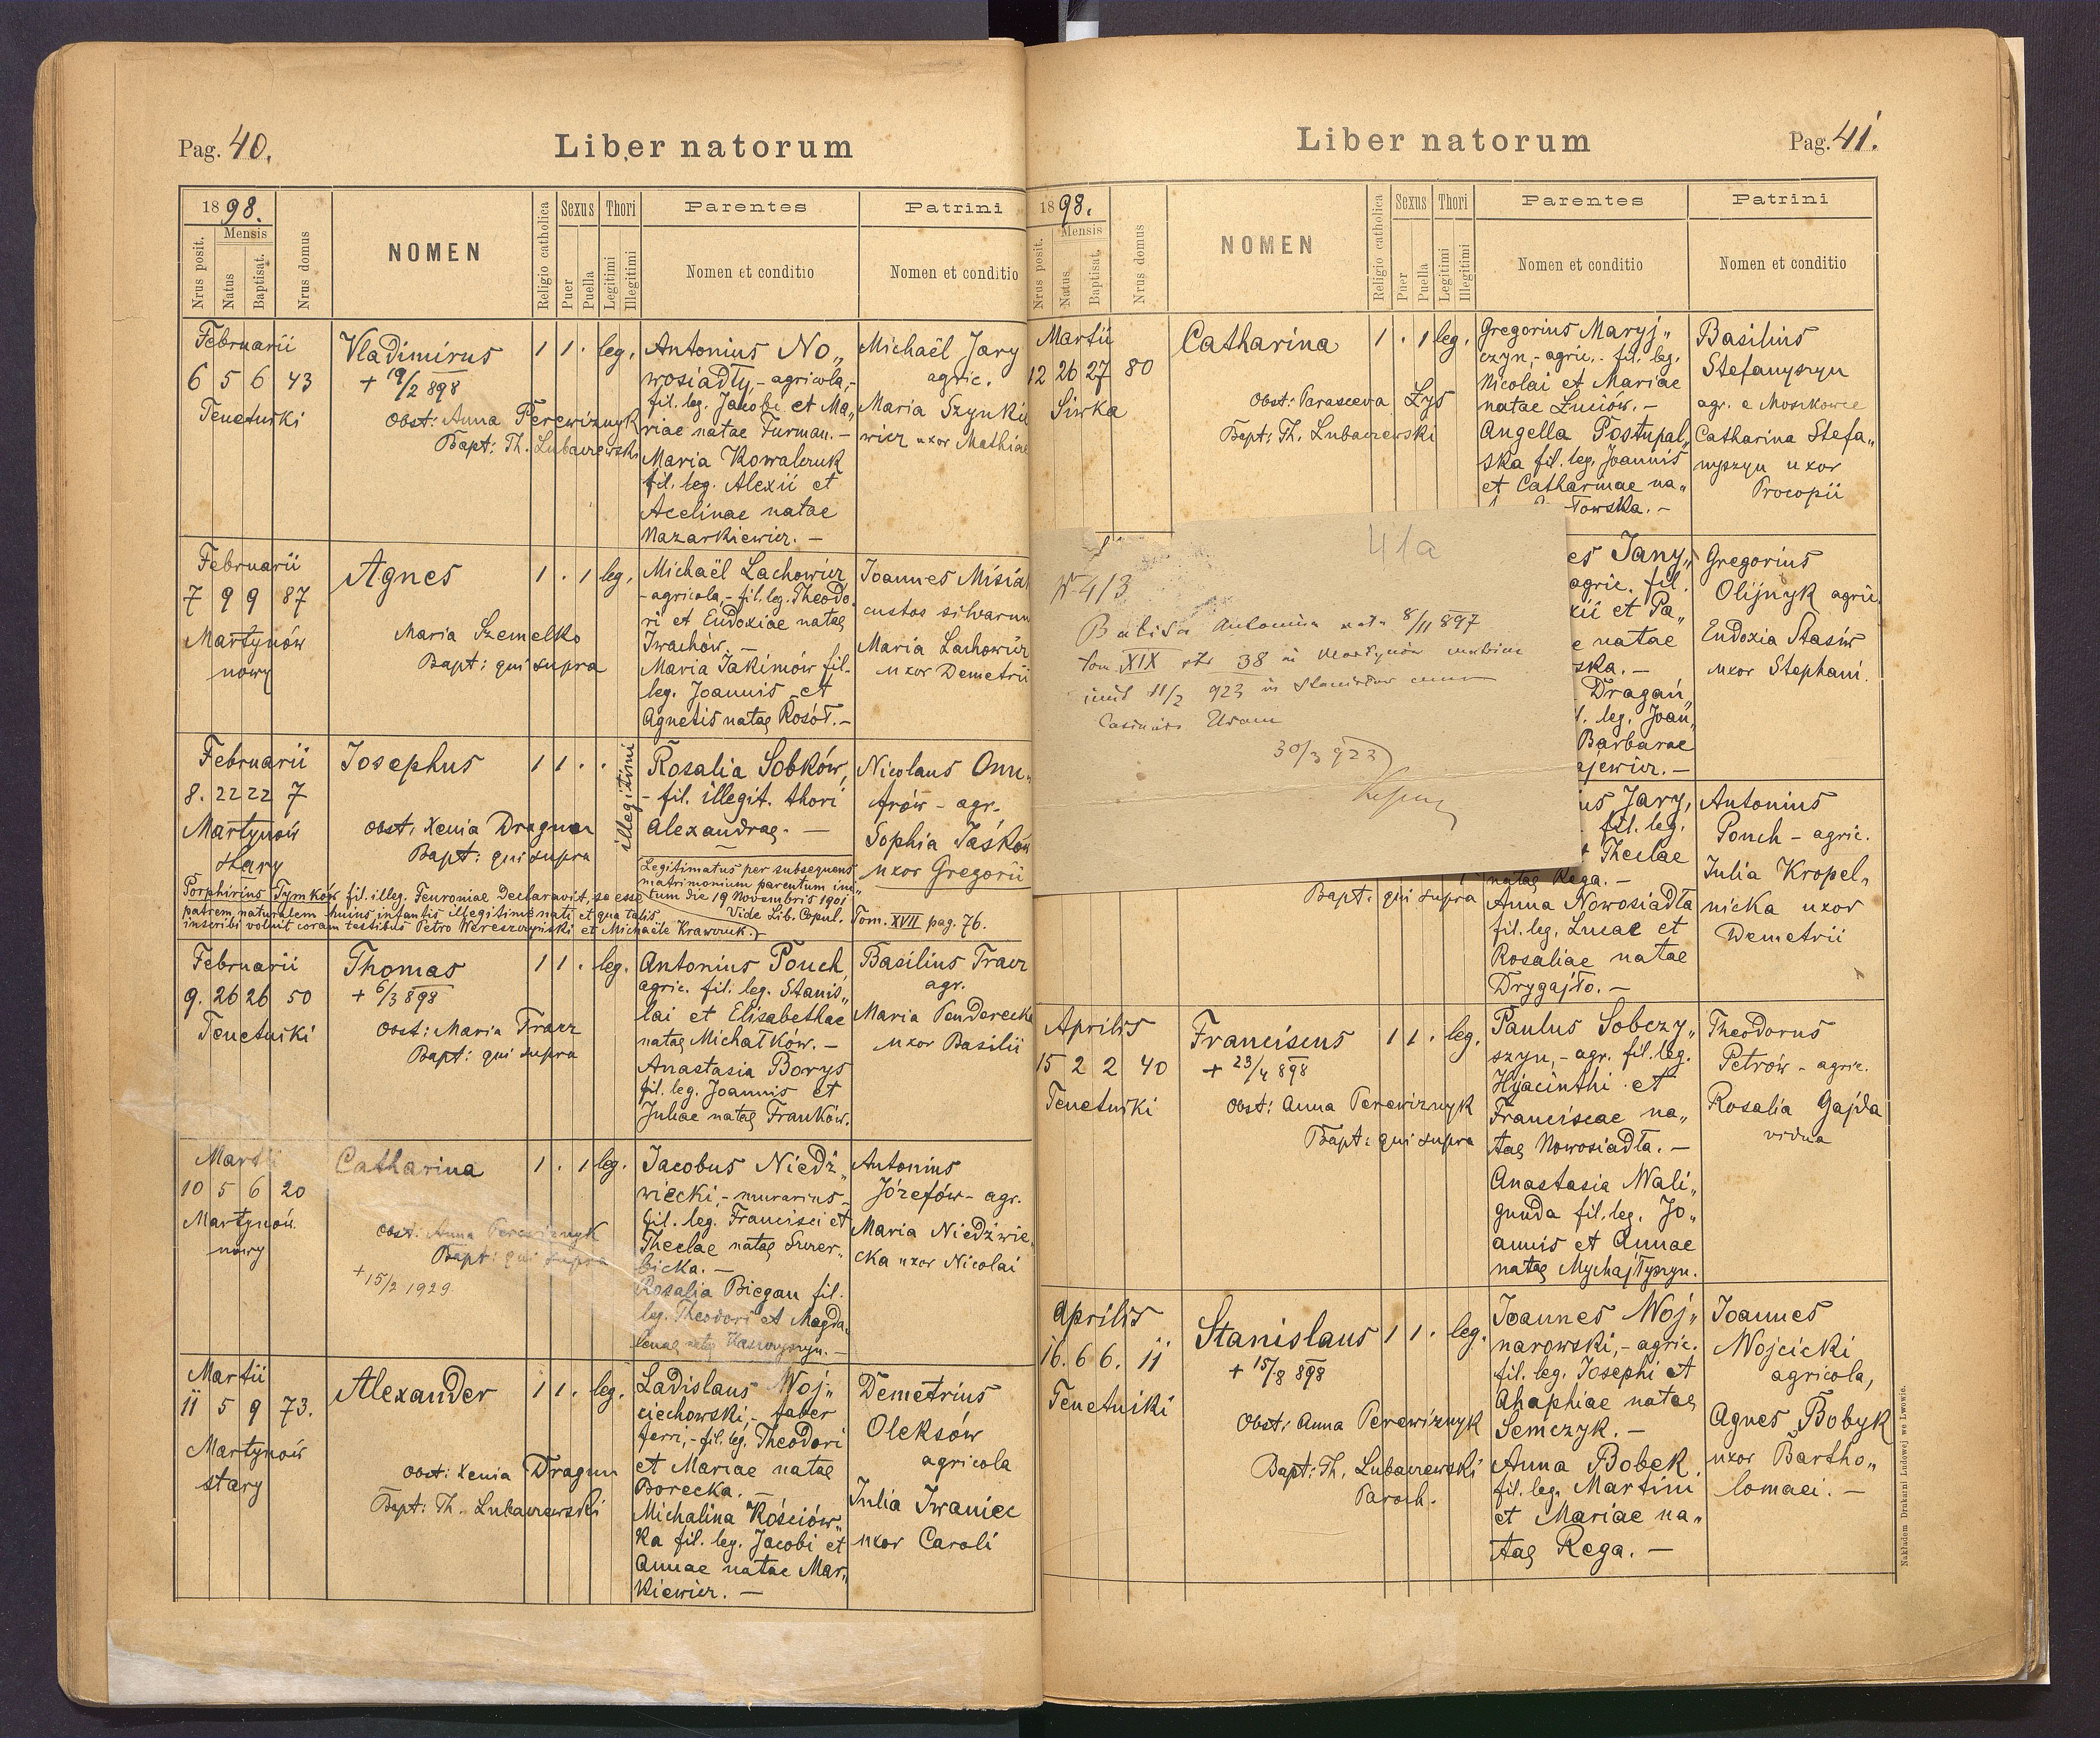 Pag. 40.
Liber natorum
1898.
Mensis
Nrus posit.
Natus
Baptisat.
Nrus domus
NOMEN
Religio catholica
Sexus
Puer
Puella
Thori
Legitimi
Illegitimi
Parentes
Nomen et conditio
Patrini
Nomen et conditio
Februarii
6 5 6 43
Tenetniki
Vladimirus
+ 19/2 898
Obst: Anna Perewiznyk
Bapt: Th. Lubaczewski
1 1 . leg.
Antonius No„
wosiadły, - agricola, -
fil. leg. Jacobi et Ma„
riae natae Furman. -
Maria Kowalczuk
fil. leg. Alexii et
Acelinae natae
Nazarkiewicz. -
Michaël Jary
agric.
Maria Szynkie
wicz uxor Mathiae
Februarii
7 9 9 87
Martynów
nowy
Agnes
Maria Szemelko
Bapt: qui supra
1 . 1 leg.
Michaël Lachowicz
- agricola, - fil. leg. Theodo
ri et Eudoxiae natae
Iwachów. -
Maria Jakimów fil.
leg. Joannis et
Agnetis natae Rosół. -
Joannes Misia
custos silvarum
Maria Lachowicz
uxor Demetrii
Februarii
8. 22 22 7
Martynów
stary
Josephus
Obst. Xenia Dragun
Bapt: qui supra
1 1 . .
illegitimi
Rosalia Sobków,
- fil. illegit. thori
Alexandrae. -
Legitimatus per subsequens
matrimonium parentum ini„
tum die 19 Novembris 1901
Vide Lib. Copul. Tom. XVII pag. 76.
Nicolaus Onu„
frów - agr.
Sophia Jaśków
uxor Gregorii
Porphirius Tymków fil. illeg. Feuroniae Declaravit, se esse
patrem naturalem huius infantis illegitime nati et qua talis
inscribi voluit coram testibus Petro Wereszczyński et Michaële Krawczuk. -
Februarii
9. 26 26 50
Tenetniki
Thomas
+ 6/3 898
Obst: Maria Tracz
Bapt: qui supra
1 1 . leg.
Antonius Ponch
agric. fil. leg. Stanis„
lai et Elisabethae
natae Michałków. -
Anastasia Borys
fil. leg. Joannis et
Juliae natae Franków.
Basilius Tracz
agr.
Maria Penderecka
uxor Basilii
Martii
10 5 6 20
Martynów
nowy
Catharina
Obst: Anna Perewiznyk
Bapt: qui supra
+ 15/2 1929
1 . 1 leg.
Jacobus Niedź„
wiecki - murarius -
fil. leg. Francisci et
Theclae natae Szczer„
bicka. -
Rosalia Biegan fil.
leg. Theodori et Magda„
lenae natae
Antonius
Józefów - agr.
Maria Niedźwie„
cka uxor Nicolai
Martii
11 5 9 73.
Martynów
stary
Alexander
Obst: Xenia Dragun
Bapt: Th. Lubaczewski
1 1 . leg.
Ladislaus Woj„
ciechowski, - faber
ferri, - fil. leg. Theodori
et Mariae natae
Borecka. -
Michalina Kościów„
ka fil. leg. Jacobi et
Annae natae Mar„
kiewicz. -
Demetrius
Oleksów
agricola
Julia Iwaniec
uxor Caroli
Liber natorum
Pag. 41.
1898.
Mensis
Nrus posit.
Natus
Baptisat.
Nrus domus
NOMEN
Religio catholica
Sexus
Puer
Puella
Thori
Legitimi
Illegitimi
Parentes
Nomen et conditio
Patrini
Nomen et conditio
Martii
12 26 27 80
Siwka
Catharina
Obst: Parasceva Łys
Bapt: Th. Lubaczewski
1 . 1 leg.
Gregorius Maryj„
czyn, - agric. - fil. leg.
Nicolai et Mariae
natae Łuciów. -
Angella Postupal„
ska fil. leg. Joannis
et Catharinae na„
Towska. -
Basilius
Stefanyszyn
agr. e Moszkowce
Catharina Stefa„
nyszyn uxor
Procopii
41a
N 413
Antonina nata 8/11 897
tom. XIX str 38 in Martynów
11/2 923 in
30/3 923
es Jany„
agric. fil.
xii et Pa„
e natae
ska. -
Dragan„
l. leg. Joan„
Barbarae
ajewicz. -
Gregorius
Olijnyk agric.
Eudoxia Stasiw
uxor Stephani.
us Jary,
fil. leg.
Theclae
natae Rega. -
Anna Nowosiadła
fil. leg. Lucae et
Rosaliae natae
Drygajło. -
Bapt: qui supra
Antonius
Ponch - agric.
Julia Kropel„
nicka uxor
Demetrii
Aprilis
15 2 2 40
Tenetniki
Franciscus
+ 23/4 898
Obst: Anna Perewiznyk
Bapt: qui supra
1 1 . leg.
Paulus Sobczy„
szyn, - agr. fil. leg.
Hyacinthi et
Franciscae na„
tae Nowosiadła. -
Anastasia Wali„
gunda fil. leg. Jo„
annis et Annae
natae Mychajłyszyn.
Theodorus
Petrów - agric.
Rosalia Gajda
vidua
Aprilis
16. 6 6. 11
Tenetniki
Stanislaus
+ 15/8 898
Obst: Anna Perewiznyk
Bapt: Th. Lubaczewski
Paroch.
1 1 . leg.
Joannes Woj„
narowski, - agric.
fil. leg. Josephi et
Ahaphiae natae
Semczyk. -
Anna Bobek
fil. leg. Martini
et Mariae na„
tae Rega. -
Joannes
Wojcicki
agricola,
Agnes Bobyk
uxor Bartho„
lomaei. -
Nakładem Drukarni Ludowej we Lwowie.